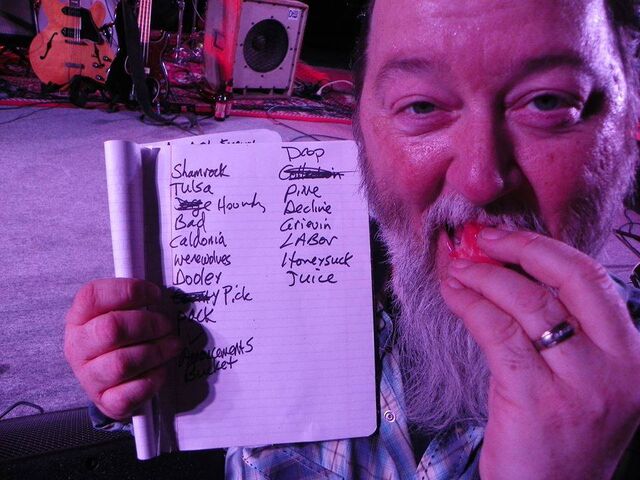 Shamrock
Tulsa
Hounds
Bad
Caldonia
Werewolves
Dooley
Pick
Announcements
Bucket
Drop
Pine
Decline
Grievin
LABOR
Honeysuck
Juice